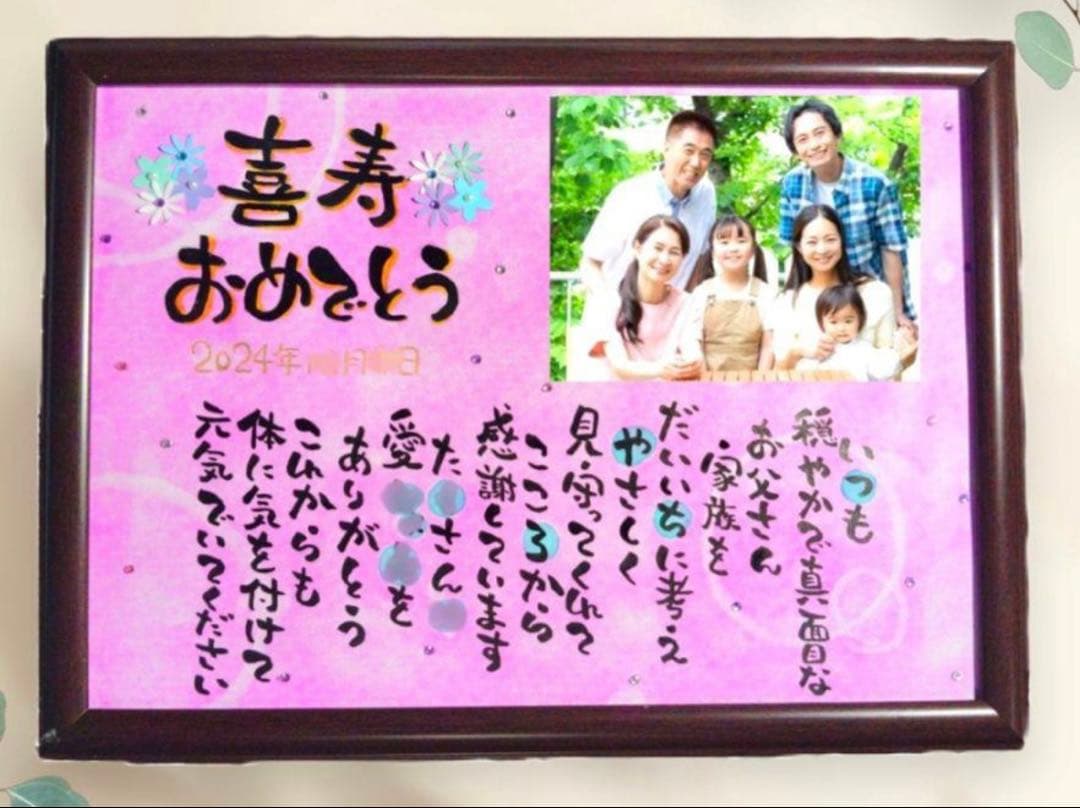 喜寿
おめでとう
2024年 月 日
いつも
穏やかで真面目な
お父さん
家族を
だいいちに考え
やさしく
見守ってくれて
こころから
感謝しています
た さん
愛 を
ありがとう
これからも
体に気を付けて
元気でいてください